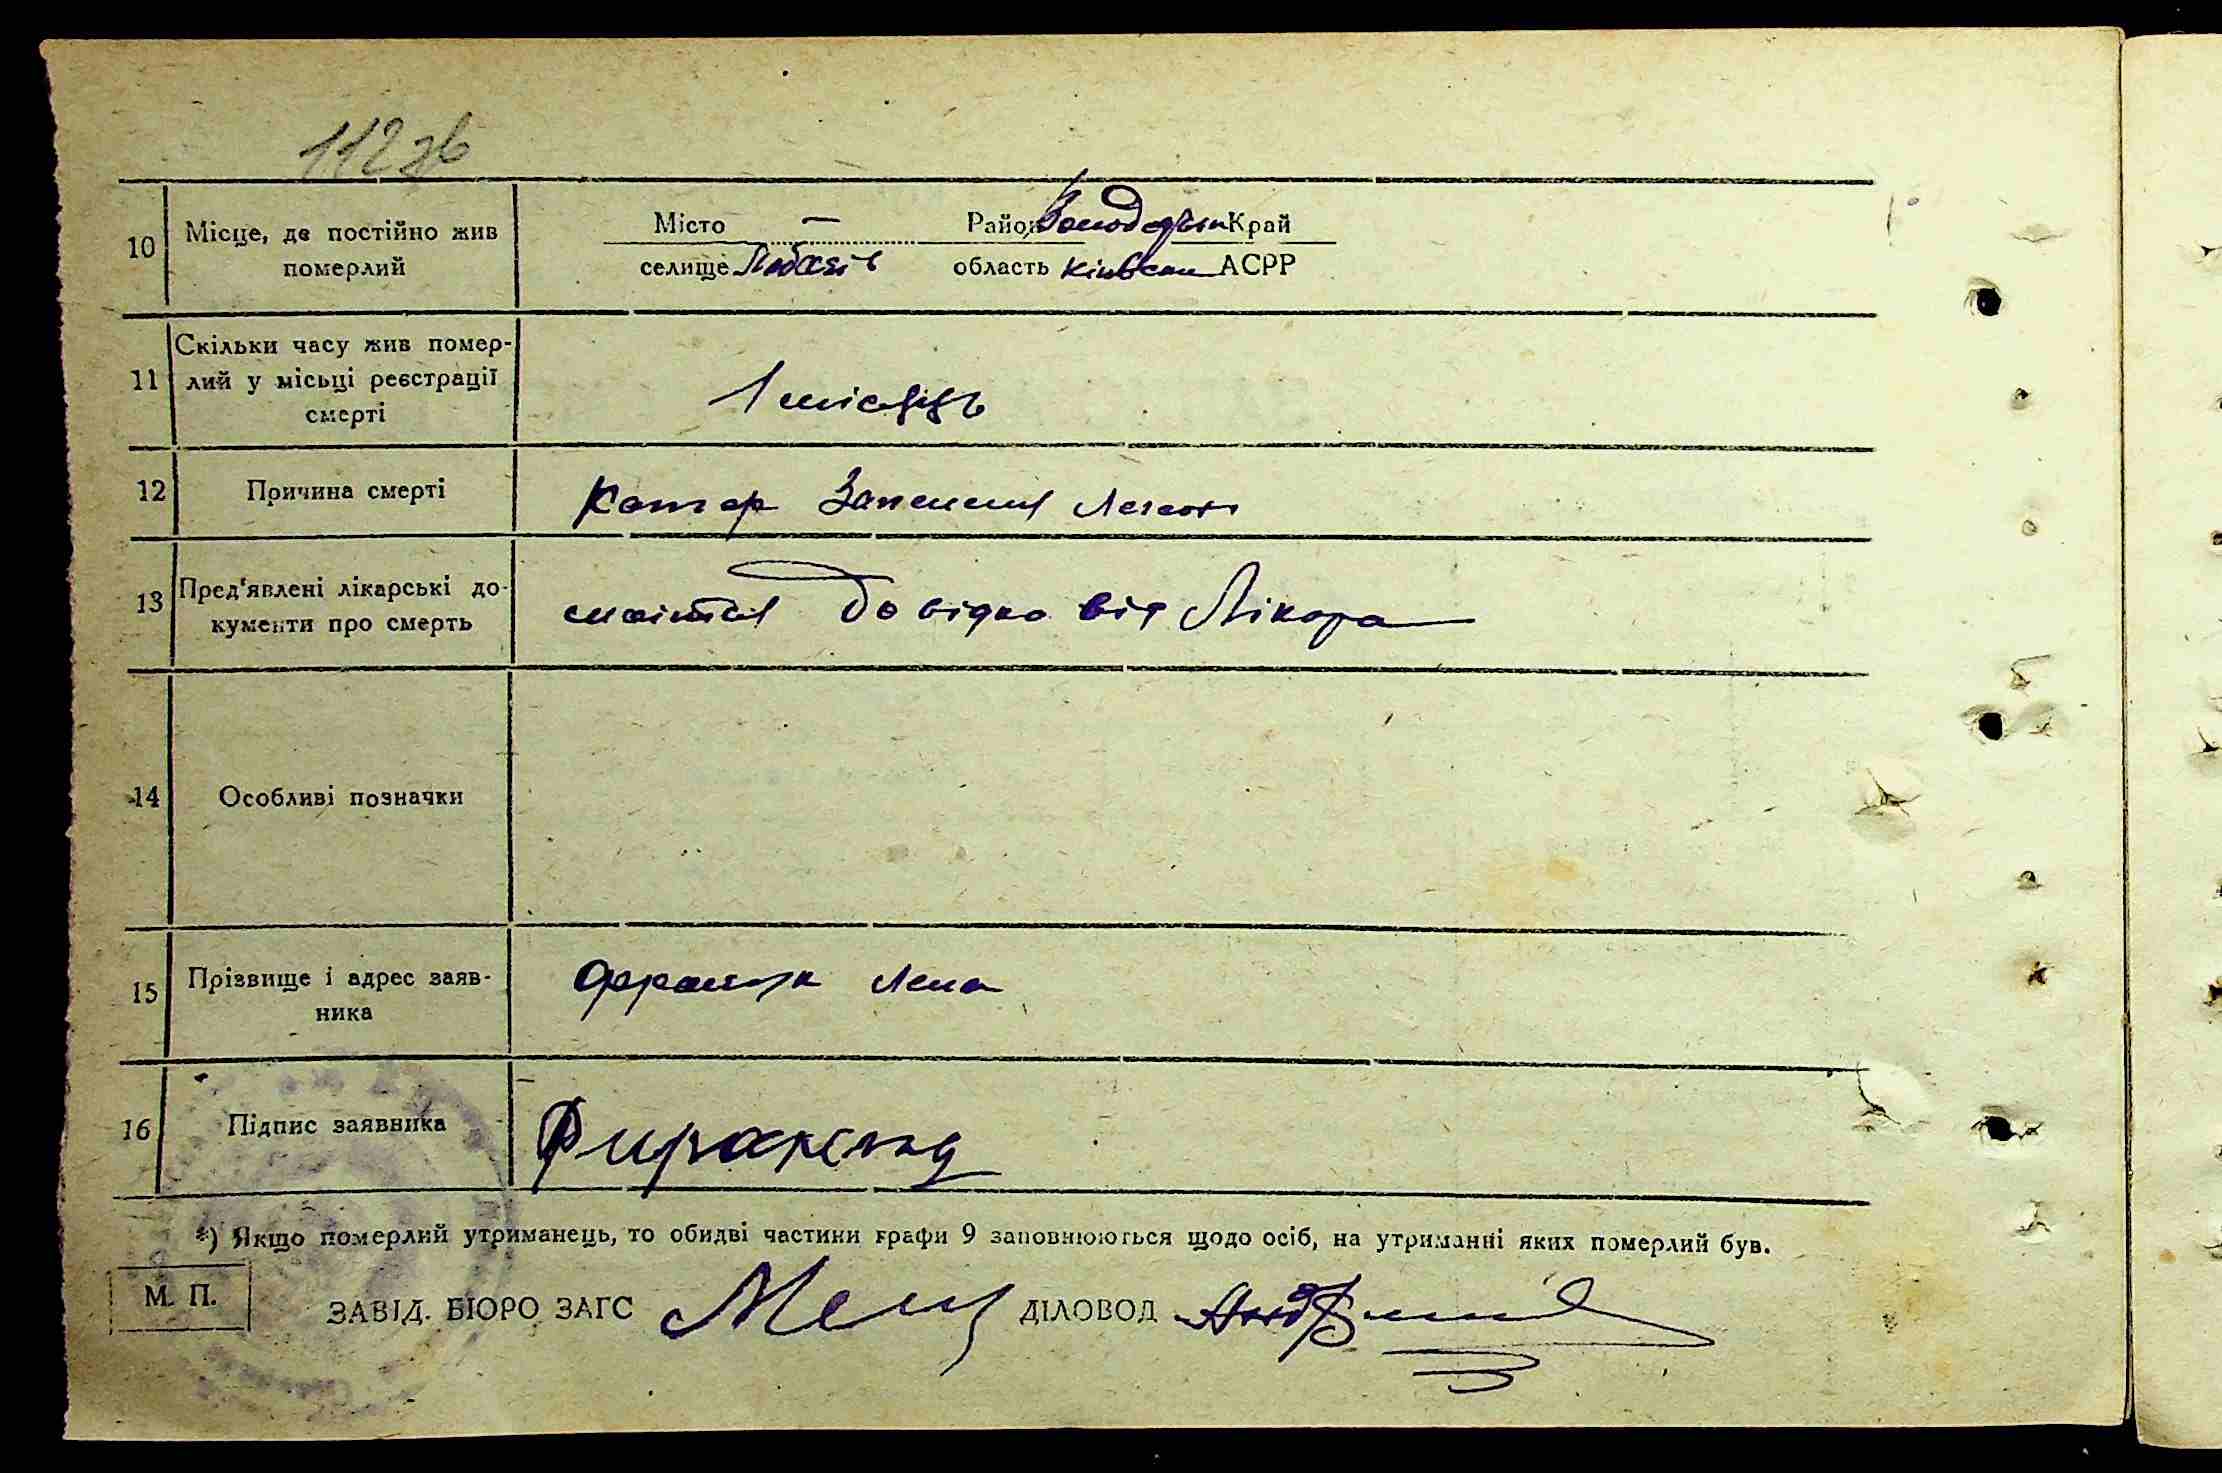 112 зв
10 Місце, де постійно жив померлий
Місто — Район Володарськ Край
селище область Київськ АСРР
11 Скільки часу жив помер-
лий у місьці реєстрації
смерті
1 місяць
12 Причина смерті
Катар Запеления Легень
13 Пред'явлені лікарські до-
кументи про смерть
довідка від Лікора
14 Особливі позначки
15 Прізвище і адрес заяв-
ника
16 Підпис заявника
*) Якщо померлий утриманець, то обидві частини графи 9 заповнюються щодо осіб, на утриманні яких померлий був.
М. П.
ЗАВІД. БЮРО ЗАГС ДІЛОВОД